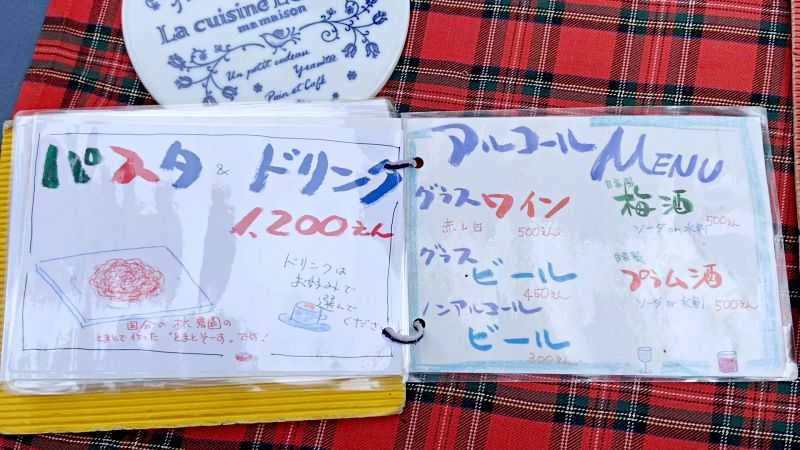 La cuisine
ma maison
Un petit cadeau
Pain et Café
パスタ & ドリンク
1,200えん
ドリンクは
お好みで
選んで
くださ
国分の林農園の
とまとで作った"とまとそーす"です!
アルコール MENU
グラスワイン
赤 or 白 500えん
グラス
ビール
450えん
ノンアルコール
ビール
300えん
自家製
梅酒
500えん
ソーダ or 水割
自家製
プラム酒
ソーダ or 水割 500えん